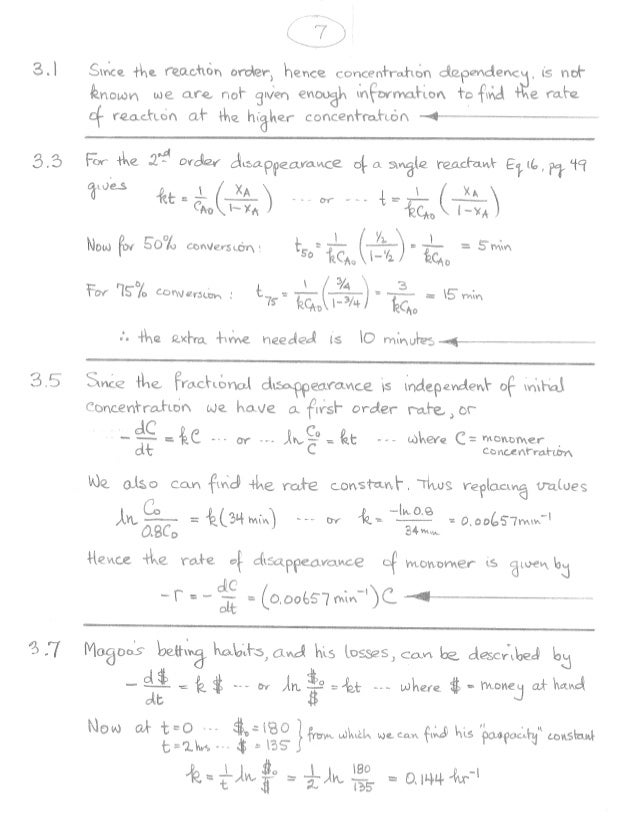 7
3.1 Since the reaction order, hence concentration dependency, is not
known we are not given enough information to find the rate
of reaction at the higher concentration ←
3.3 For the 2nd order disappearance of a single reactant Eq 16, pg 49
gives kt = 1/C_A0 (X_A/(1-X_A)) ... or ... t = 1/(kC_A0) (X_A/(1-X_A))
Now for 50% conversion: t_50 = 1/(kC_A0) (½/(1-½)) = 1/(kC_A0) = 5 min
For 75% conversion: t_75 = 1/(kC_A0) ((3/4)/(1-3/4)) = 3/(kC_A0) = 15 min
∴ the extra time needed is 10 minutes ←
3.5 Since the fractional disappearance is independent of initial
concentration we have a first order rate, or
-dC/dt = kC ... or ... ln C_0/C = kt ... where C = monomer
concentration
We also can find the rate constant. Thus replacing values
ln C_0/(0.8C_0) = k(34 min) ... or k = -ln 0.8/(34 min) = 0.00657 min⁻¹
Hence the rate of disappearance of monomer is given by
-r = -dC/dt = (0.00657 min⁻¹) C ←
3.7 Magoo's betting habits, and his losses, can be described by
-d$/dt = k $ ... or ln $_0/$ = kt ... where $ = money at hand
Now at t=0 ... $_0 = 180 } from which we can find his "paspacity" constant
t=2 hrs ... $ = 135
k = 1/t ln $_0/$ = 1/2 ln 180/135 = 0.144 hr⁻¹